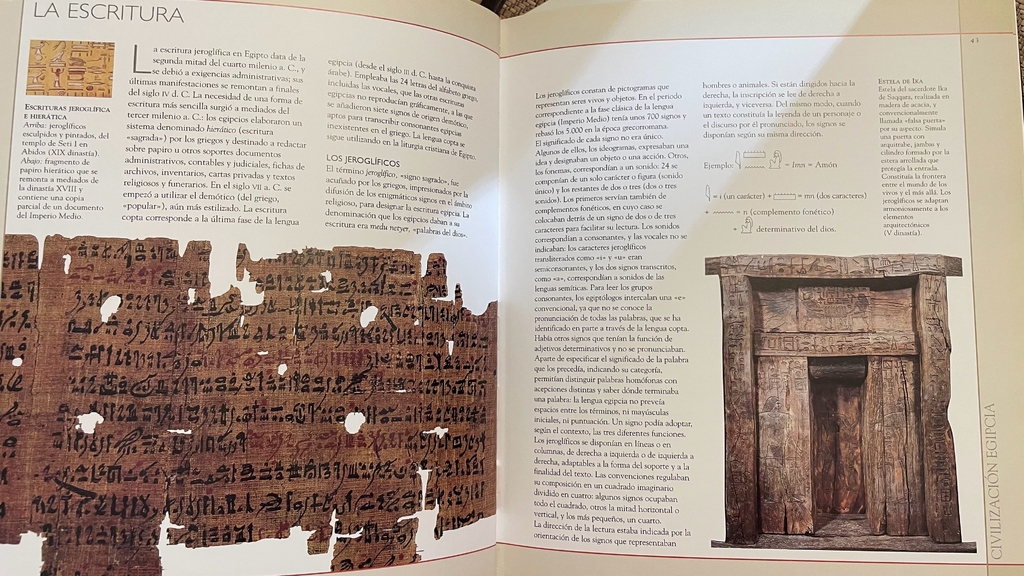 LA ESCRITURA
ESCRITURAS JEROGLÍFICA
E HIERÁTICA
Arriba: jeroglíficos
esculpidos y pintados, del
templo de Seti I en
Abidos (XIX dinastía).
Abajo: fragmento de
papiro hierático que se
remonta a mediados de
la dinastía XVIII y
contiene una copia
parcial de un documento
del Imperio Medio.
La escritura jeroglífica en Egipto data de la
segunda mitad del cuarto milenio a. C., y
se debió a exigencias administrativas; sus
últimas manifestaciones se remontan a finales
del siglo IV d. C. La necesidad de una forma de
escritura más sencilla surgió a mediados del
tercer milenio a. C.: los egipcios elaboraron un
sistema denominado hierático (escritura
«sagrada») por los griegos y destinado a redactar
sobre papiro u otros soportes documentos
administrativos, contables y judiciales, fichas de
archivos, inventarios, cartas privadas y textos
religiosos y funerarios. En el siglo VII a. C. se
empezó a utilizar el demótico (del griego,
«popular»), aún más estilizado. La escritura
copta corresponde a la última fase de la lengua
egipcia (desde el siglo III d. C. hasta la conquista
árabe). Empleaba las 24 letras del alfabeto griego,
incluidas las vocales, que las otras escrituras
egipcias no reproducían gráficamente, a las que
se añadieron siete signos de origen demótico,
aptos para transcribir consonantes egipcias
inexistentes en el griego. La lengua copta se
sigue utilizando en la liturgia cristiana de Egipto.
LOS JEROGLÍFICOS
El término jeroglífico, «signo sagrado», fue
acuñado por los griegos, impresionados por la
difusión de los enigmáticos signos en el ámbito
religioso, para designar la escritura egipcia. La
denominación que los egipcios daban a su
escritura era medu netyer, «palabras del dios».
43
Los jeroglíficos constan de pictogramas que
representan seres vivos y objetos. En el período
correspondiente a la fase clásica de la lengua
egipcia (Imperio Medio) tenía unos 700 signos y
rebasó los 5.000 en la época grecorromana.
El significado de cada signo no era único.
Algunos de ellos, los ideogramas, expresaban una
idea y designaban un objeto o una acción. Otros,
los fonemas, correspondían a un sonido: 24 se
componían de un solo carácter o figura (sonido
único) y los restantes de dos o tres (dos o tres
sonidos). Los primeros servían también de
complementos fonéticos, en cuyo caso se
colocaban detrás de un signo de dos o de tres
caracteres para facilitar su lectura. Los sonidos
correspondían a consonantes, y las vocales no se
indicaban: los caracteres jeroglíficos
transliterados como «i» y «u» eran
semiconsonantes, y los dos signos transcritos,
como «a», correspondían a sonidos de las
lenguas semíticas. Para leer los grupos
consonantes, los egiptólogos intercalan una «e»
convencional, ya que no se conoce la
pronunciación de todas las palabras, que se ha
identificado en parte a través de la lengua copta.
Había otros signos que tenían la función de
adjetivos determinativos y no se pronunciaban.
Aparte de especificar el significado de la palabra
que los precedía, indicando su categoría,
permitían distinguir palabras homófonas con
acepciones distintas y saber dónde terminaba
una palabra: la lengua egipcia no preveía
espacios entre los términos, ni mayúsculas
iniciales, ni puntuación. Un signo podía adoptar,
según el contexto, las tres diferentes funciones.
Los jeroglíficos se disponían en líneas o en
columnas, de derecha a izquierda o de izquierda a
derecha, adaptables a la forma del soporte y a la
finalidad del texto. Las convenciones regulaban
su composición en un cuadrado imaginario
dividido en cuatro: algunos signos ocupaban
todo el cuadrado, otros la mitad horizontal o
vertical, y los más pequeños, un cuarto.
La dirección de la lectura estaba indicada por la
orientación de los signos que representaban
hombres o animales. Si están dirigidos hacia la
derecha, la inscripción se lee de derecha a
izquierda, y viceversa. Del mismo modo, cuando
un texto constituía la leyenda de un personaje o
el discurso por él pronunciado, los signos se
disponían según su misma dirección.
Ejemplo = Imn = Amón
= i (un carácter) + = mn (dos caracteres)
+ = n (complemento fonético)
+ determinativo del dios.
ESTELA DE IKA
Estela del sacerdote Ika
de Saqqara, realizada en
madera de acacia, y
convencionalmente
llamada «falsa puerta»
por su aspecto. Simula
una puerta con
arquitrabe, jambas y
cilindro formado por la
estera arrollada que
protegía la entrada.
Constituía la frontera
entre el mundo de los
vivos y el más allá. Los
jeroglíficos se adaptan
armoniosamente a los
elementos
arquitectónicos
(V dinastía).
CIVILIZACIÓN EGIPCIA